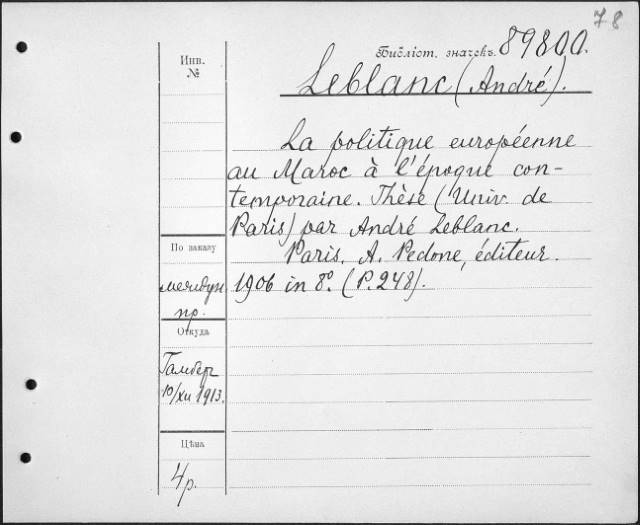 78
Библіот. значекъ. 89800.
Инв. №
Leblanc (André).
La politique européenne
au Maroc à l'époque con-
temporaine. Thèse (Univ. de
Paris) par André Leblanc.
Paris, A. Pedone, éditeur.
1906 in 8º. (P. 248).
По заказу
междун.
пр.
Откуда
Гамбер
10/XII 1913.
Цѣна
4 р.